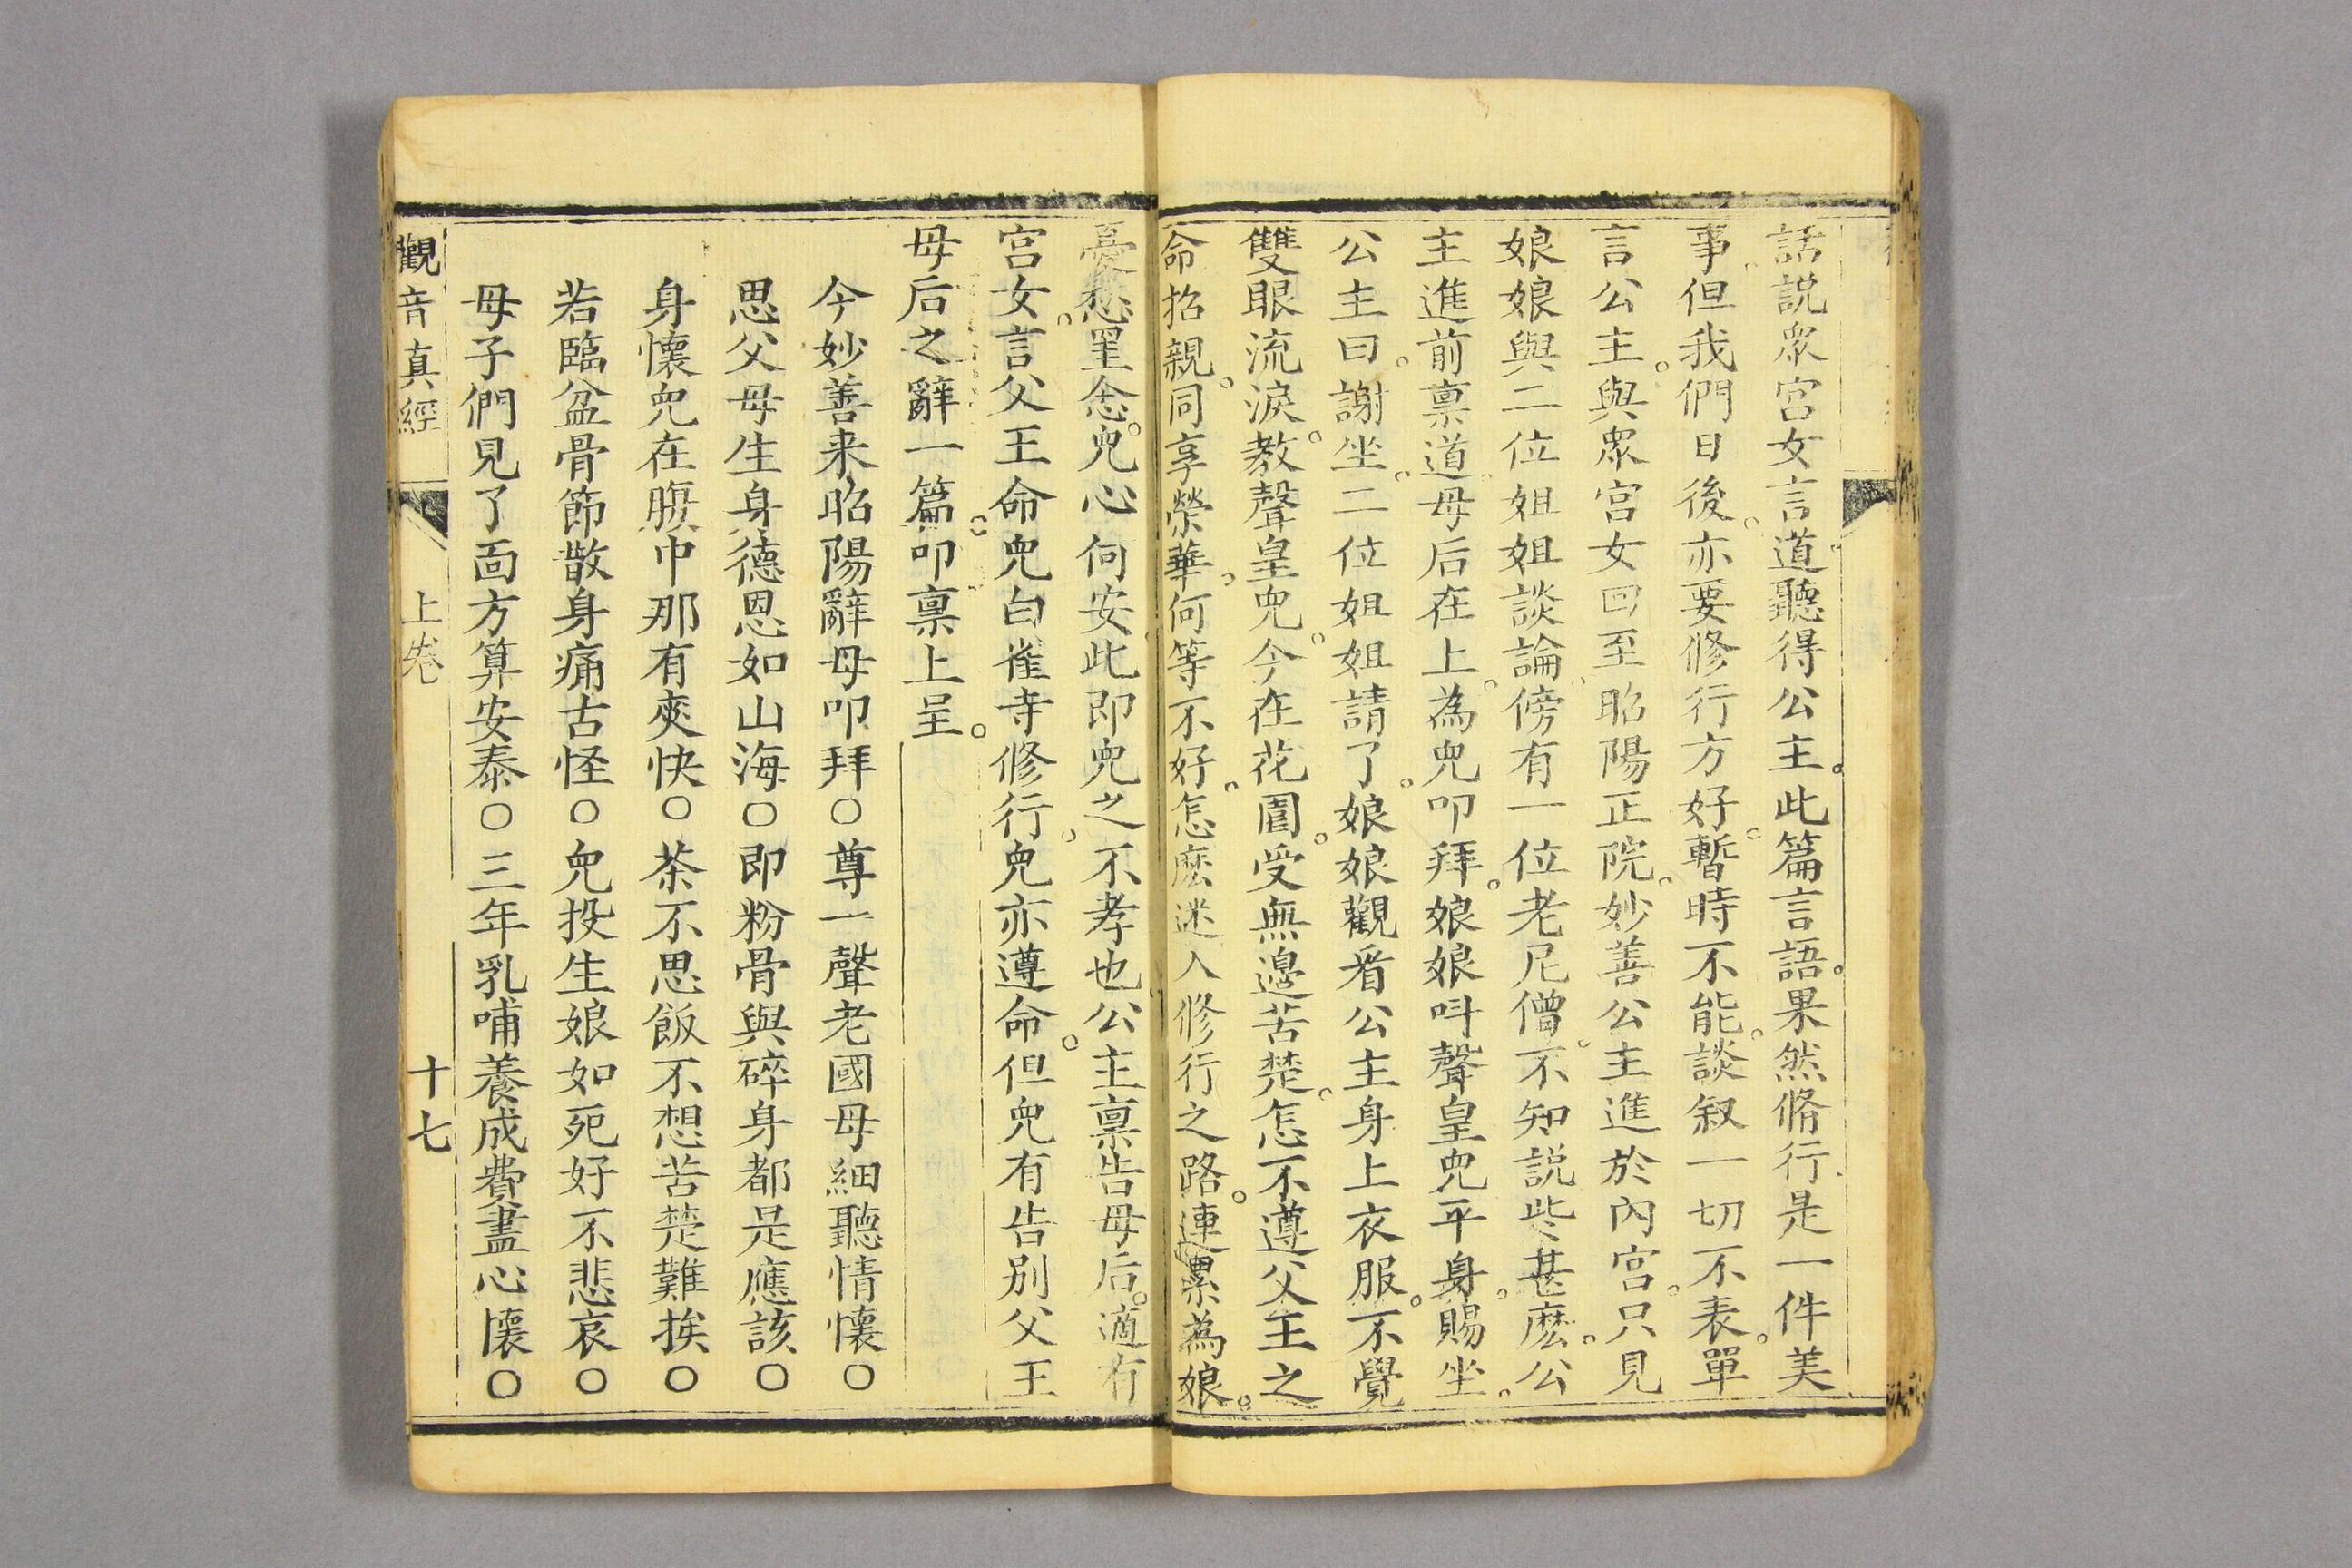 話説衆宮女言道聽得公主。此篇言語。果然脩行是一件美
事。但我們日後。亦要修行方好。暫時不能。談叙一切不表。單
言公主。與衆宮女回至昭陽正院。妙善公主進於內宮。只見
娘娘與二位姐姐談論。傍有一位老尼僧。不知説些甚麽。公
主進前禀道。母后在上。為兒叩拜。娘娘呌聲皇兒平身。賜坐。
公主曰。謝坐。二位姐姐請了。娘娘觀看公主身上衣服。不覺
雙眼流淚。教聲皇兒。今在花園。受無邊苦楚。怎不遵父王之
命招親。同享榮華。何等不好。怎麽迷入修行之路。連累為娘。
憂愁罣念。兒心何安此即兒之不孝也公主禀告母后。適有
宮女言。父王命兒白雀寺修行。兒亦遵命。但兒有告別父王
母后之辭一篇。叩禀上呈。
今妙善来昭陽辭母叩拜〇尊一聲老國母細聽情懷〇
思父母生身德恩如山海〇即粉骨與碎身都是應該〇
身懷兒在腹中那有爽快〇茶不思飯不想苦楚難挨〇
若臨盆骨節散身痛古怪〇兒投生娘如死好不悲哀〇
母子們見了面方算安泰〇三年乳哺養成費盡心懷〇
觀音真經 上卷 十七